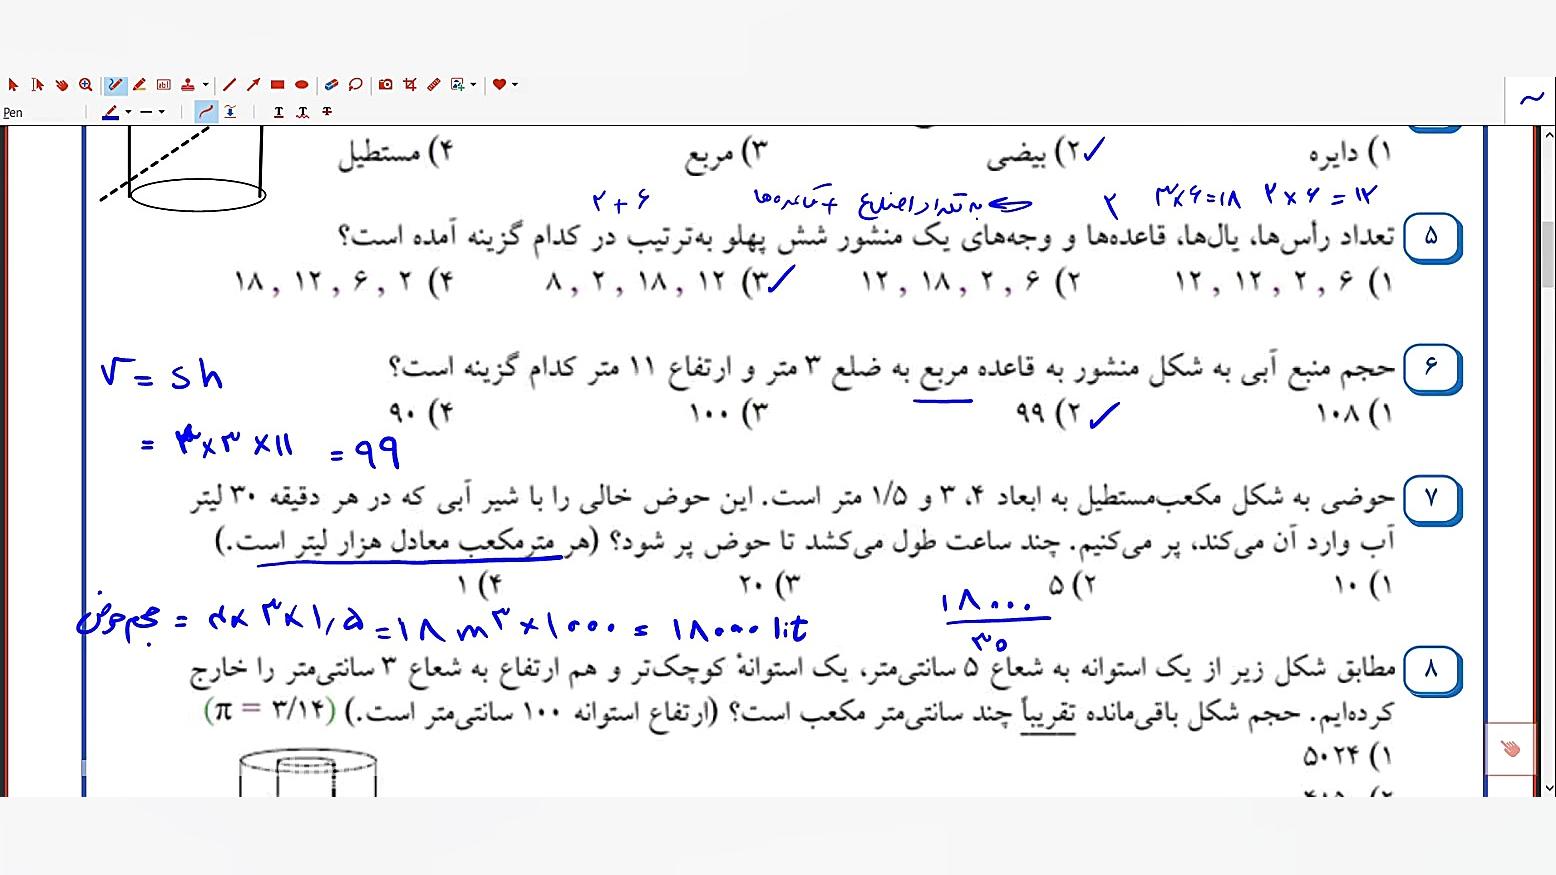 Pen
۱) دایره ۲) بیضی ۳) مربع ۴) مستطیل
۲ × ۶ = ۱۲ ۳×۶=۱۸ ۲ به تعداد اضلاع + قاعده‌ها ۲ + ۶
۵ تعداد رأس‌ها، یال‌ها، قاعده‌ها و وجه‌های یک منشور شش پهلو به‌ترتیب در کدام گزینه آمده است؟
۱) ۶ , ۲ , ۱۲ , ۱۲ ۲) ۶ , ۲ , ۱۸ , ۱۲ ۳) ۱۲ , ۱۸ , ۲ , ۸ ۴) ۲ , ۶ , ۱۲ , ۱۸
۶ حجم منبع آبی به شکل منشور به قاعده مربع به ضلع ۳ متر و ارتفاع ۱۱ متر کدام گزینه است؟
V = sh
۱) ۱۰۸ ۲) ۹۹ ۳) ۱۰۰ ۴) ۹۰
= ۳×۳×۱۱ = ۹۹
۷ حوضی به شکل مکعب‌مستطیل به ابعاد ۴، ۳ و ۱/۵ متر است. این حوض خالی را با شیر آبی که در هر دقیقه ۳۰ لیتر
آب وارد آن می‌کند، پر می‌کنیم. چند ساعت طول می‌کشد تا حوض پر شود؟ (هر مترمکعب معادل هزار لیتر است.)
۱) ۱۰ ۲) ۵ ۳) ۲۰ ۴) ۱
حجم حوض = ۴×۳×۱,۵ = ۱۸ m۳ ×۱۰۰۰ = ۱۸۰۰۰ lit
۱۸۰۰۰
۳۰
۸ مطابق شکل زیر از یک استوانه به شعاع ۵ سانتی‌متر، یک استوانهٔ کوچک‌تر و هم ارتفاع به شعاع ۳ سانتی‌متر را خارج
کرده‌ایم. حجم شکل باقی‌مانده تقریباً چند سانتی‌متر مکعب است؟ (ارتفاع استوانه ۱۰۰ سانتی‌متر است.) (π = ۳/۱۴)
۱) ۵۰۲۴